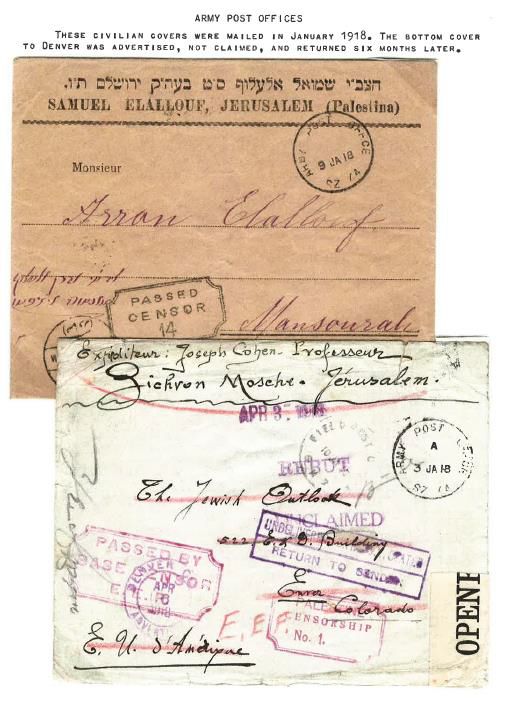 ARMY POST OFFICES
THESE CIVILIAN COVERS WERE MAILED IN JANUARY 1918. THE BOTTOM COVER
TO DENVER WAS ADVERTISED, NOT CLAIMED, AND RETURNED SIX MONTHS LATER.
הצב״י שמואל אלעלוף ס״ט בעה״ק ירושלם ת״ו.
SAMUEL ELALLOUF, JERUSALEM (Palestina)
ARMY POST OFFICE
9 JA 18
SZ 14
Monsieur
Arron Elallouf
PASSED
CENSOR
14
Mansourah
Expéditeur: Joseph Cohen - Professeur
Zichron Mosché - Jérusalem.
APR 3
FIELD POST
ARMY POST OFFICE
A
3 JA 18
SZ 14
REBUT
The Jewish Outlook
UNCLAIMED
522 Building
RETURN TO SENDER
PASSED BY
BASE CENSOR
DENVER
APR
1918
Colorado
CENSORSHIP
No. 1.
E. E. F.
E. U. d'Amérique
OPENE